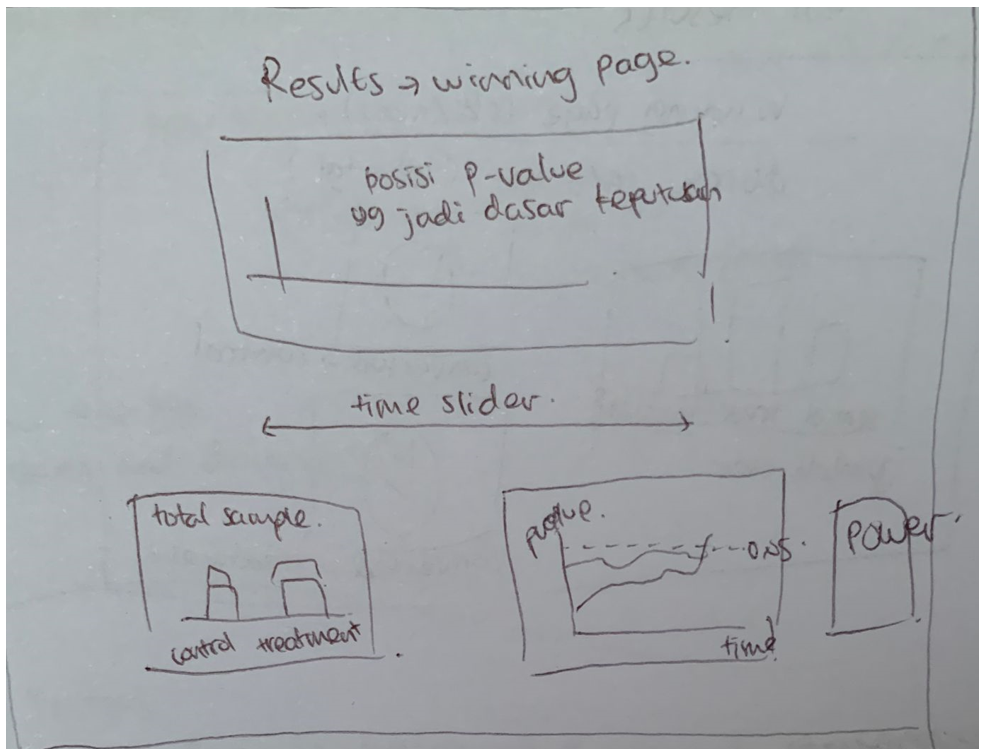 Results → winning page.
posisi p-value
yg jadi dasar keputusan
time slider.
total sample.
control treatment
pvalue.
0.05
time
Power